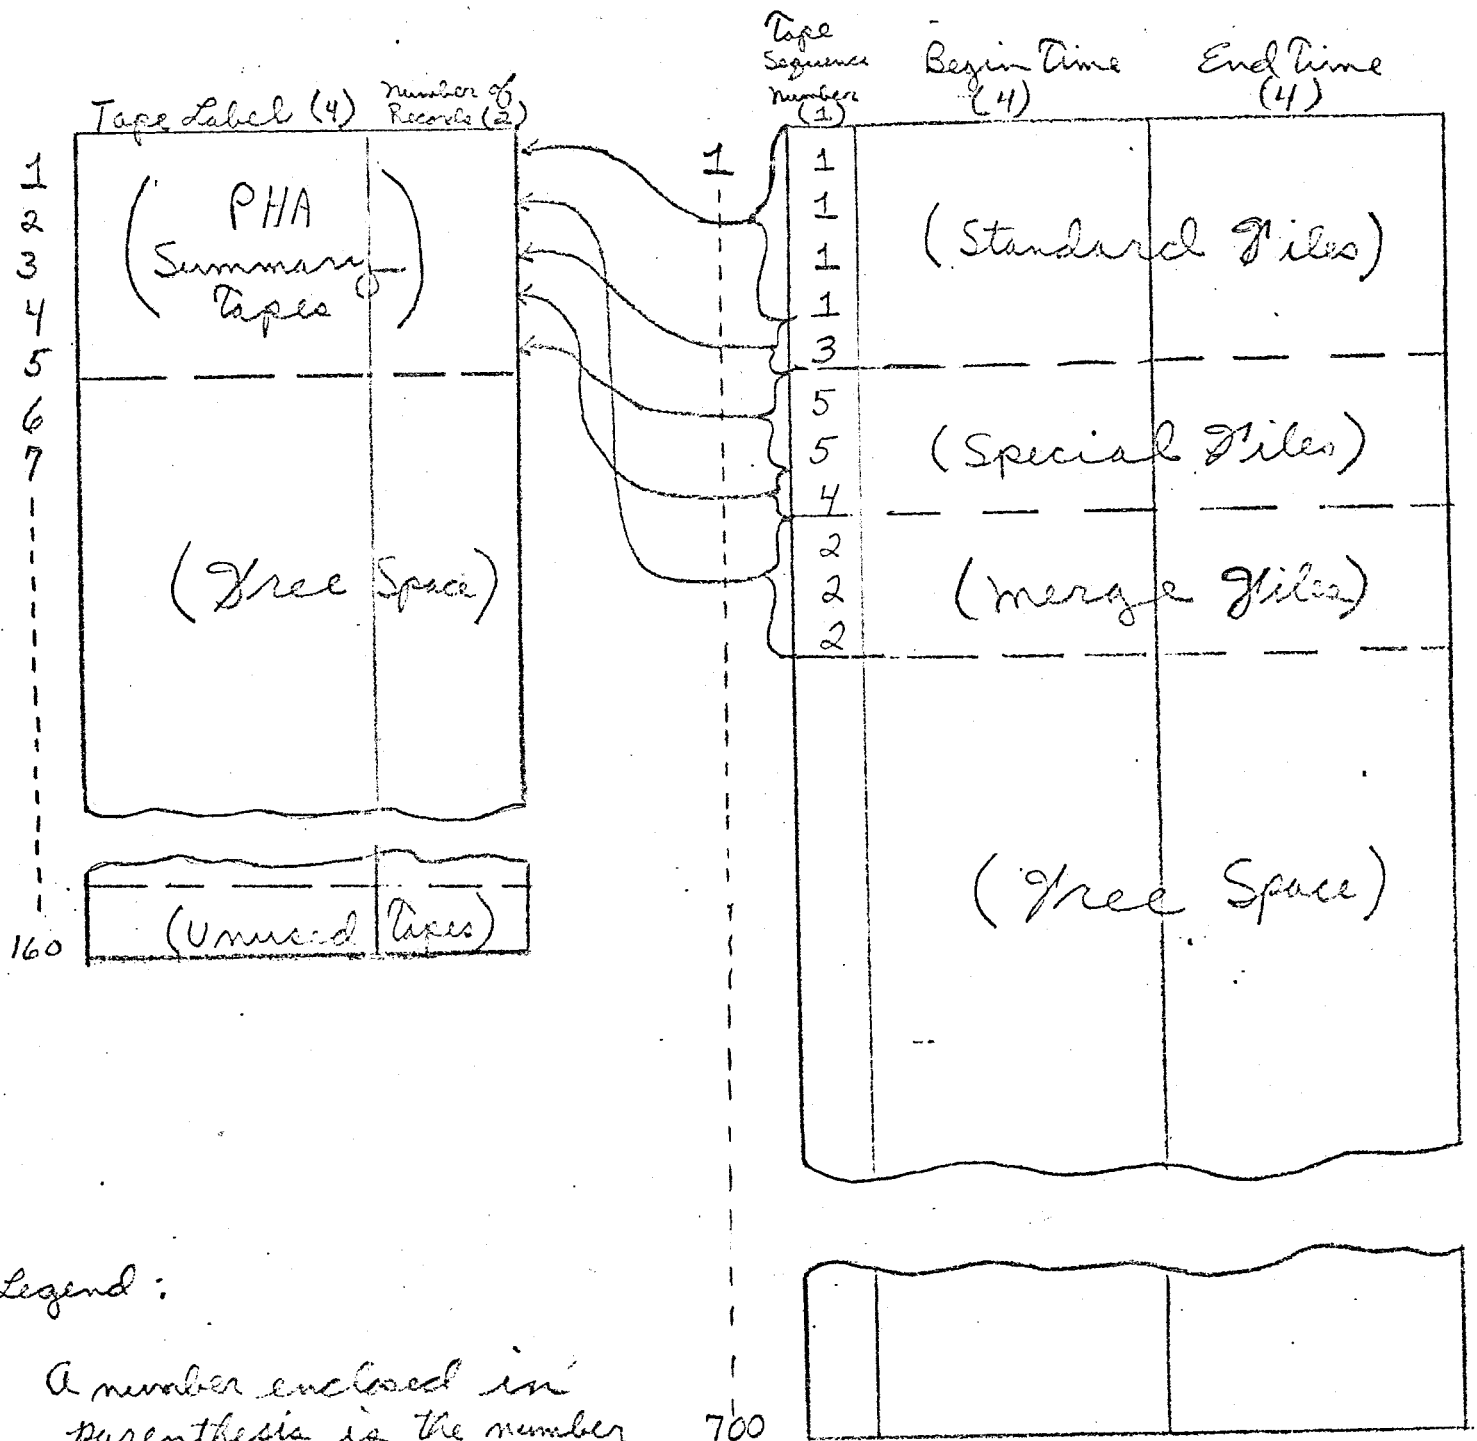 Tape Label (4)
Number of
Records (2)
1
2
3
4
5
6
7
160
(PHA
Summary
Tapes)
(Free Space)
(Unused Tapes)
Tape
Sequence
Number
(1)
Begin Time
(4)
End Time
(4)
1
700
1
1
1
1
3
5
5
4
2
2
2
(Standard Files)
(Special Files)
(Merge Files)
(Free Space)
Legend:
A number enclosed in
parenthesis is the number